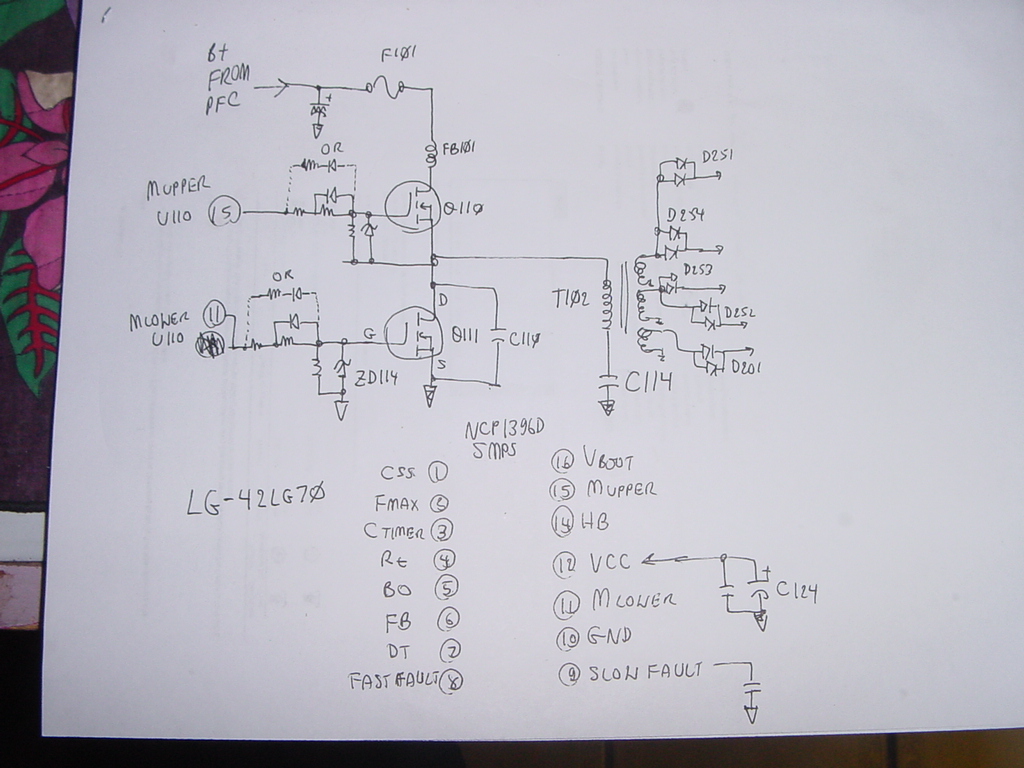 B+
FROM
PFC
F101
FB101
OR
MUPPER
U110
15
Q110
D251
D254
D253
D252
D201
T102
C114
OR
MLOWER
U110
11
G
D
S
Q111
C110
ZD114
NCP1396D
SMPS
LG-42LG70
CSS 1
FMAX 2
CTIMER 3
Rt 4
BO 5
FB 6
DT 7
FAST FAULT 8
16 VBOOT
15 MUPPER
14 HB
12 VCC
11 MLOWER
10 GND
9 SLOW FAULT
+
C124
+